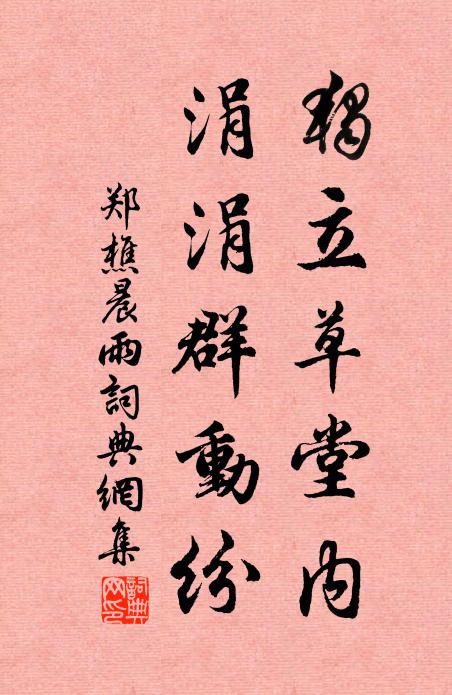 獨立草堂内
涓涓群動紛
郑樵晨雨詞典網集
詞典
网印